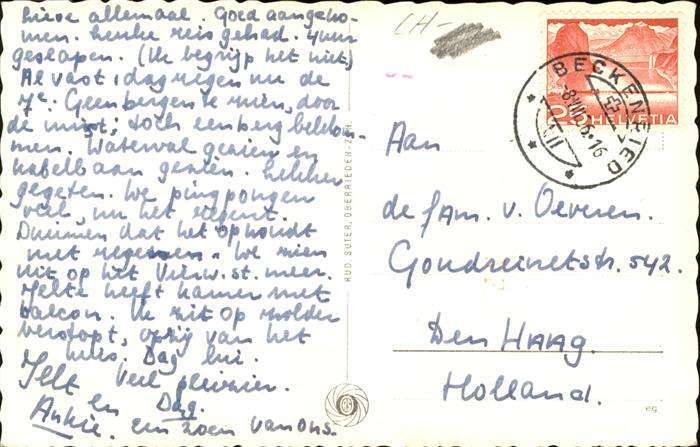 Lieve allemaal. Goed aangeko-
men. Leuke reis gehad. 4 uur
geslapen. (Ik begrijp het niet)
Al vast 1 dag regen nu de
7e. Geen bergen te zien, door
de mist; toch een berg beklom-
men. Waterval gezien en
kabelbaan gezien. Lekker
gegeten. We pingpongen
veel, nu het regent.
Duimen dat het ophoudt
met regenen. We zien
uit op het Vierw.st.meer.
Jelte heeft kamer met
balcon. Ik zit op zolder
verstopt, opzij van het
huis. Dag lui.
Veel plezier.
Jelt en Dag.
Ankie een zoen van ons.
RUD. SUTER, OBERRIEDEN-ZCH.
CH-
HELVETIA
BECKENRIED
Aan
de fam. v. Oeveren.
Goudreinetstr. 542.
Den HAAG.
Holland.